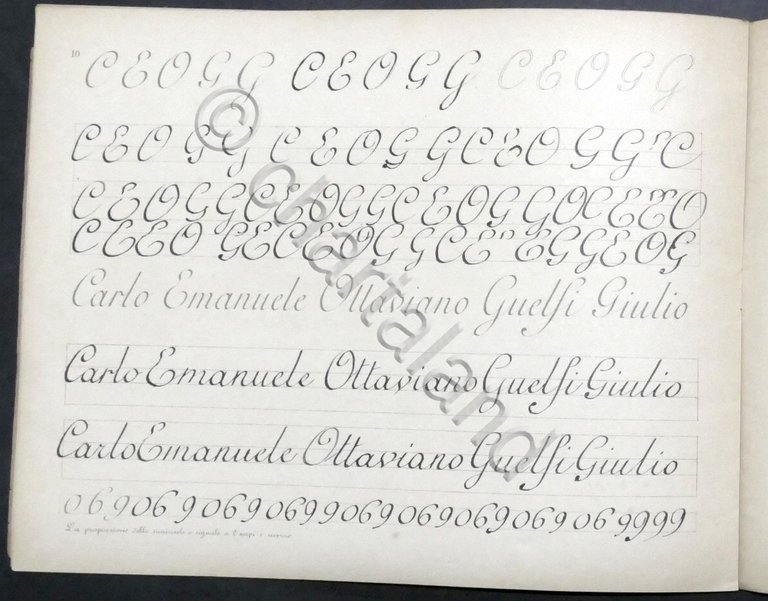 10
C E O G G C E O G G C E O G G
C E O G G C E O G G C E O G G C
C E O G G C E O G G C E O G G O C E E O
C E E O G E C E E O G G C E E G G E O G
Carlo Emanuele Ottaviano Guelfi Giulio
Carlo Emanuele Ottaviano Guelfi Giulio
Carlo Emanuele Ottaviano Guelfi Giulio
0 6 9 0 6 9 0 6 9 0 6 9 9 0 6 9 0 6 9 0 6 9 0 6 9 0 6 9 9 9 9
La proporzione delle minuscole è uguale a
© chartaland